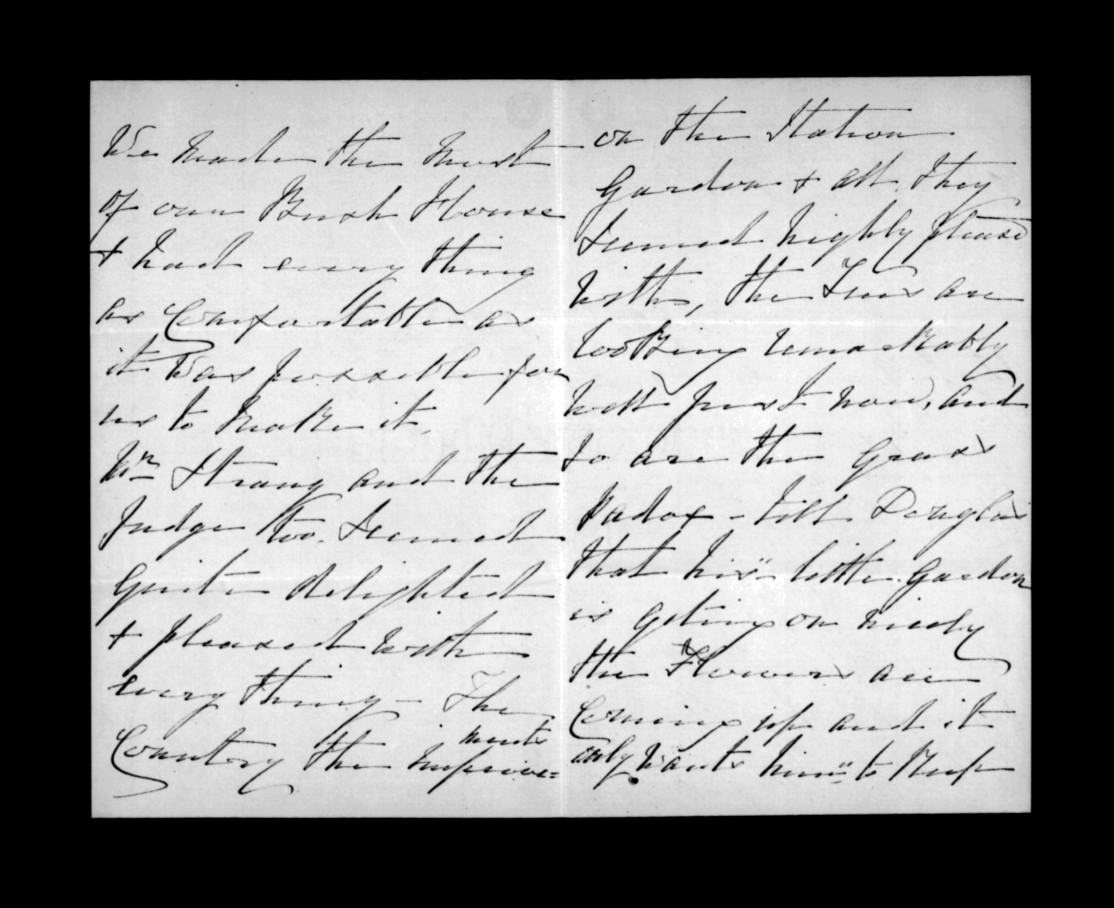 We made the most
of our Bush House
& had every thing
as Comfortable as
it was possible for
us to make it.
Mr Strang and the
Judge too. Seemed
quite delighted
& pleased with
every thing - The
Country the improve=
ments
on the Station
Gardon & all they
seemed highly pleased
with, the Trees are
looking remarkably
well just now, and
so are the Grass
Padox - tell Douglas
that his little Gardon
is geting on nicely
the Flowers are
Coming up and it
only wants him to Keep